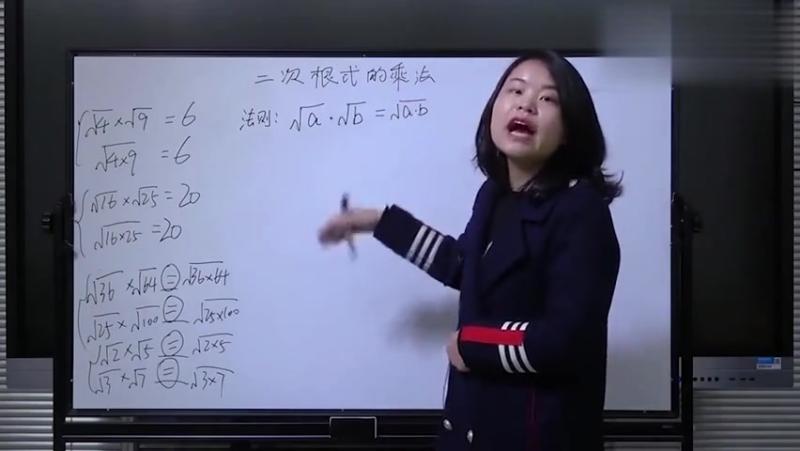 二次根式的乘法
法则: √a · √b = √a·b
√4 × √9 = 6
√4×9 = 6
√16 × √25 = 20
√16×25 = 20
√36 × √64 = √36×64
√25 × √100 = √25×100
√2 × √5 = √2×5
√3 × √7 = √3×7